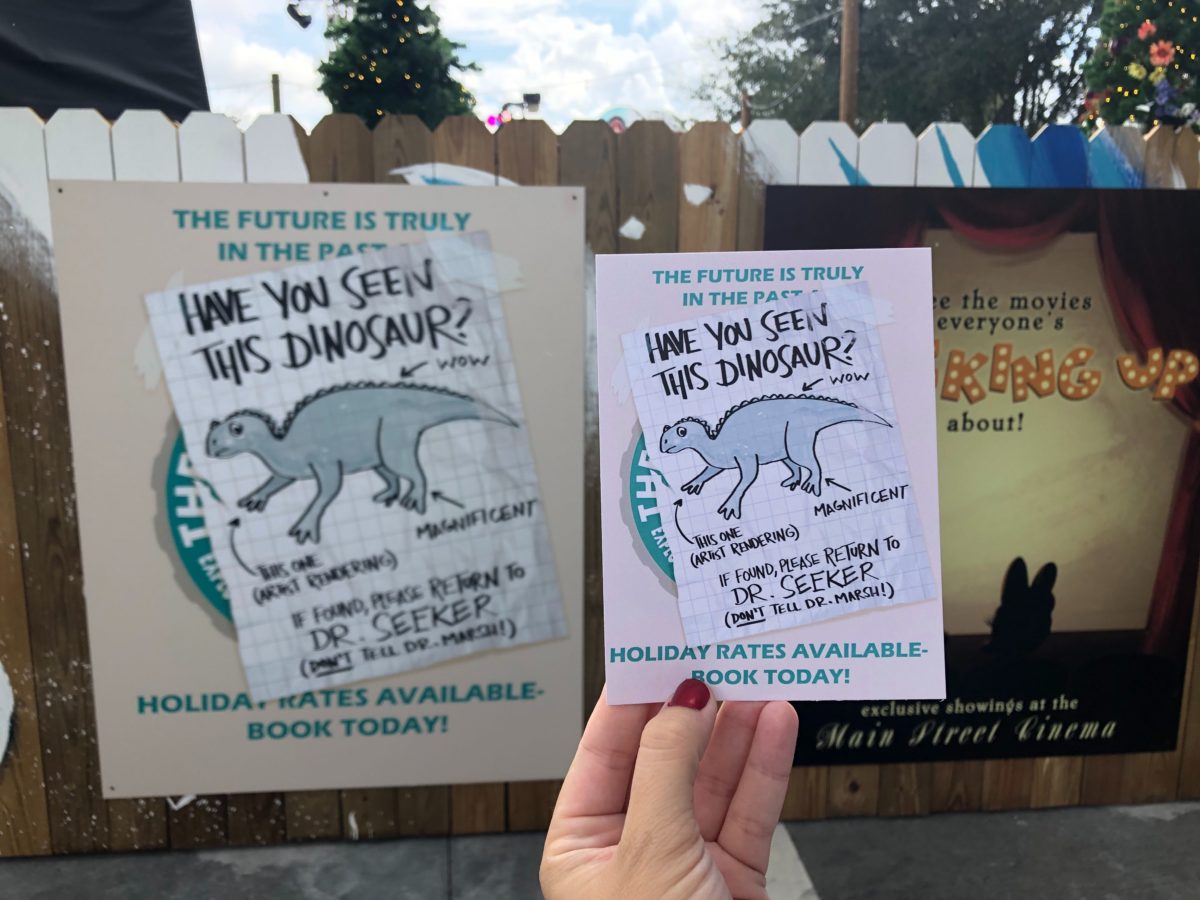 THE FUTURE IS TRULY
IN THE PAST
HAVE YOU SEEN
THIS DINOSAUR?
WOW
MAGNIFICENT
THIS ONE
(ARTIST RENDERING)
IF FOUND, PLEASE RETURN TO
DR. SEEKER
(DON'T TELL DR. MARSH!)
THE
EXPLO
HOLIDAY RATES AVAILABLE-
BOOK TODAY!
THE FUTURE IS TRULY
IN THE PAST
HAVE YOU SEEN
THIS DINOSAUR?
WOW
MAGNIFICENT
THIS ONE
(ARTIST RENDERING)
IF FOUND, PLEASE RETURN TO
DR. SEEKER
(DON'T TELL DR. MARSH!)
THE
EXPLO
HOLIDAY RATES AVAILABLE-
BOOK TODAY!
the movies
everyone's
KING UP
about!
exclusive showings at the
Main Street Cinema